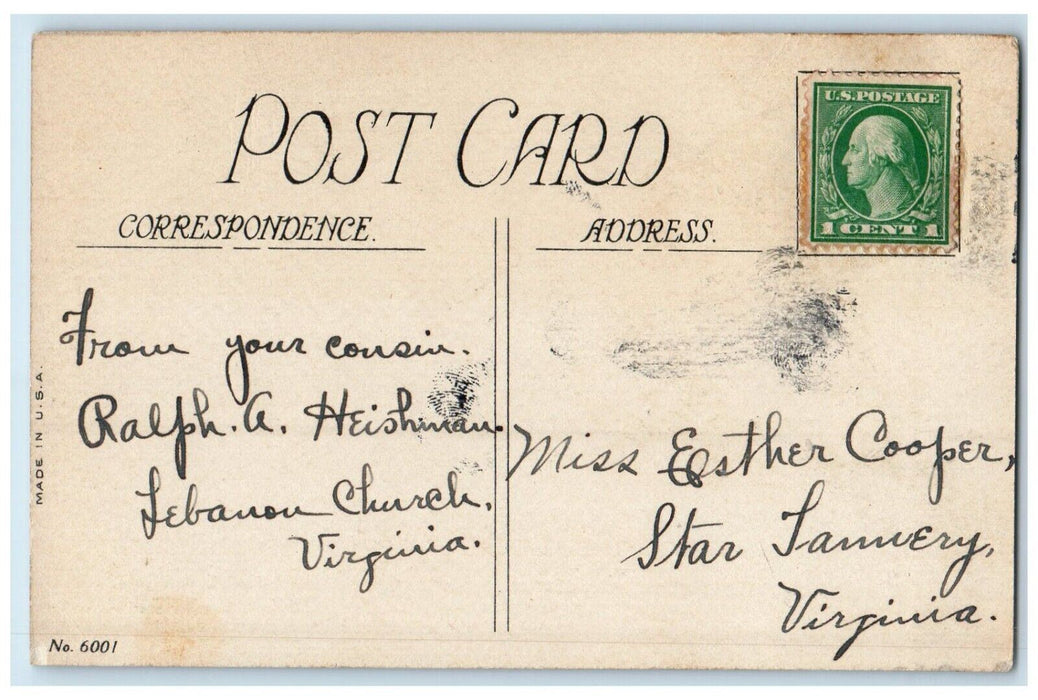 POST CARD
U.S. POSTAGE
1 CENT 1
CORRESPONDENCE.
ADDRESS.
From your cousin.
Ralph. A. Heishman.
Lebanon Church,
Virginia.
Miss Esther Cooper,
Star Tannery,
Virginia.
MADE IN U.S.A.
No. 6001